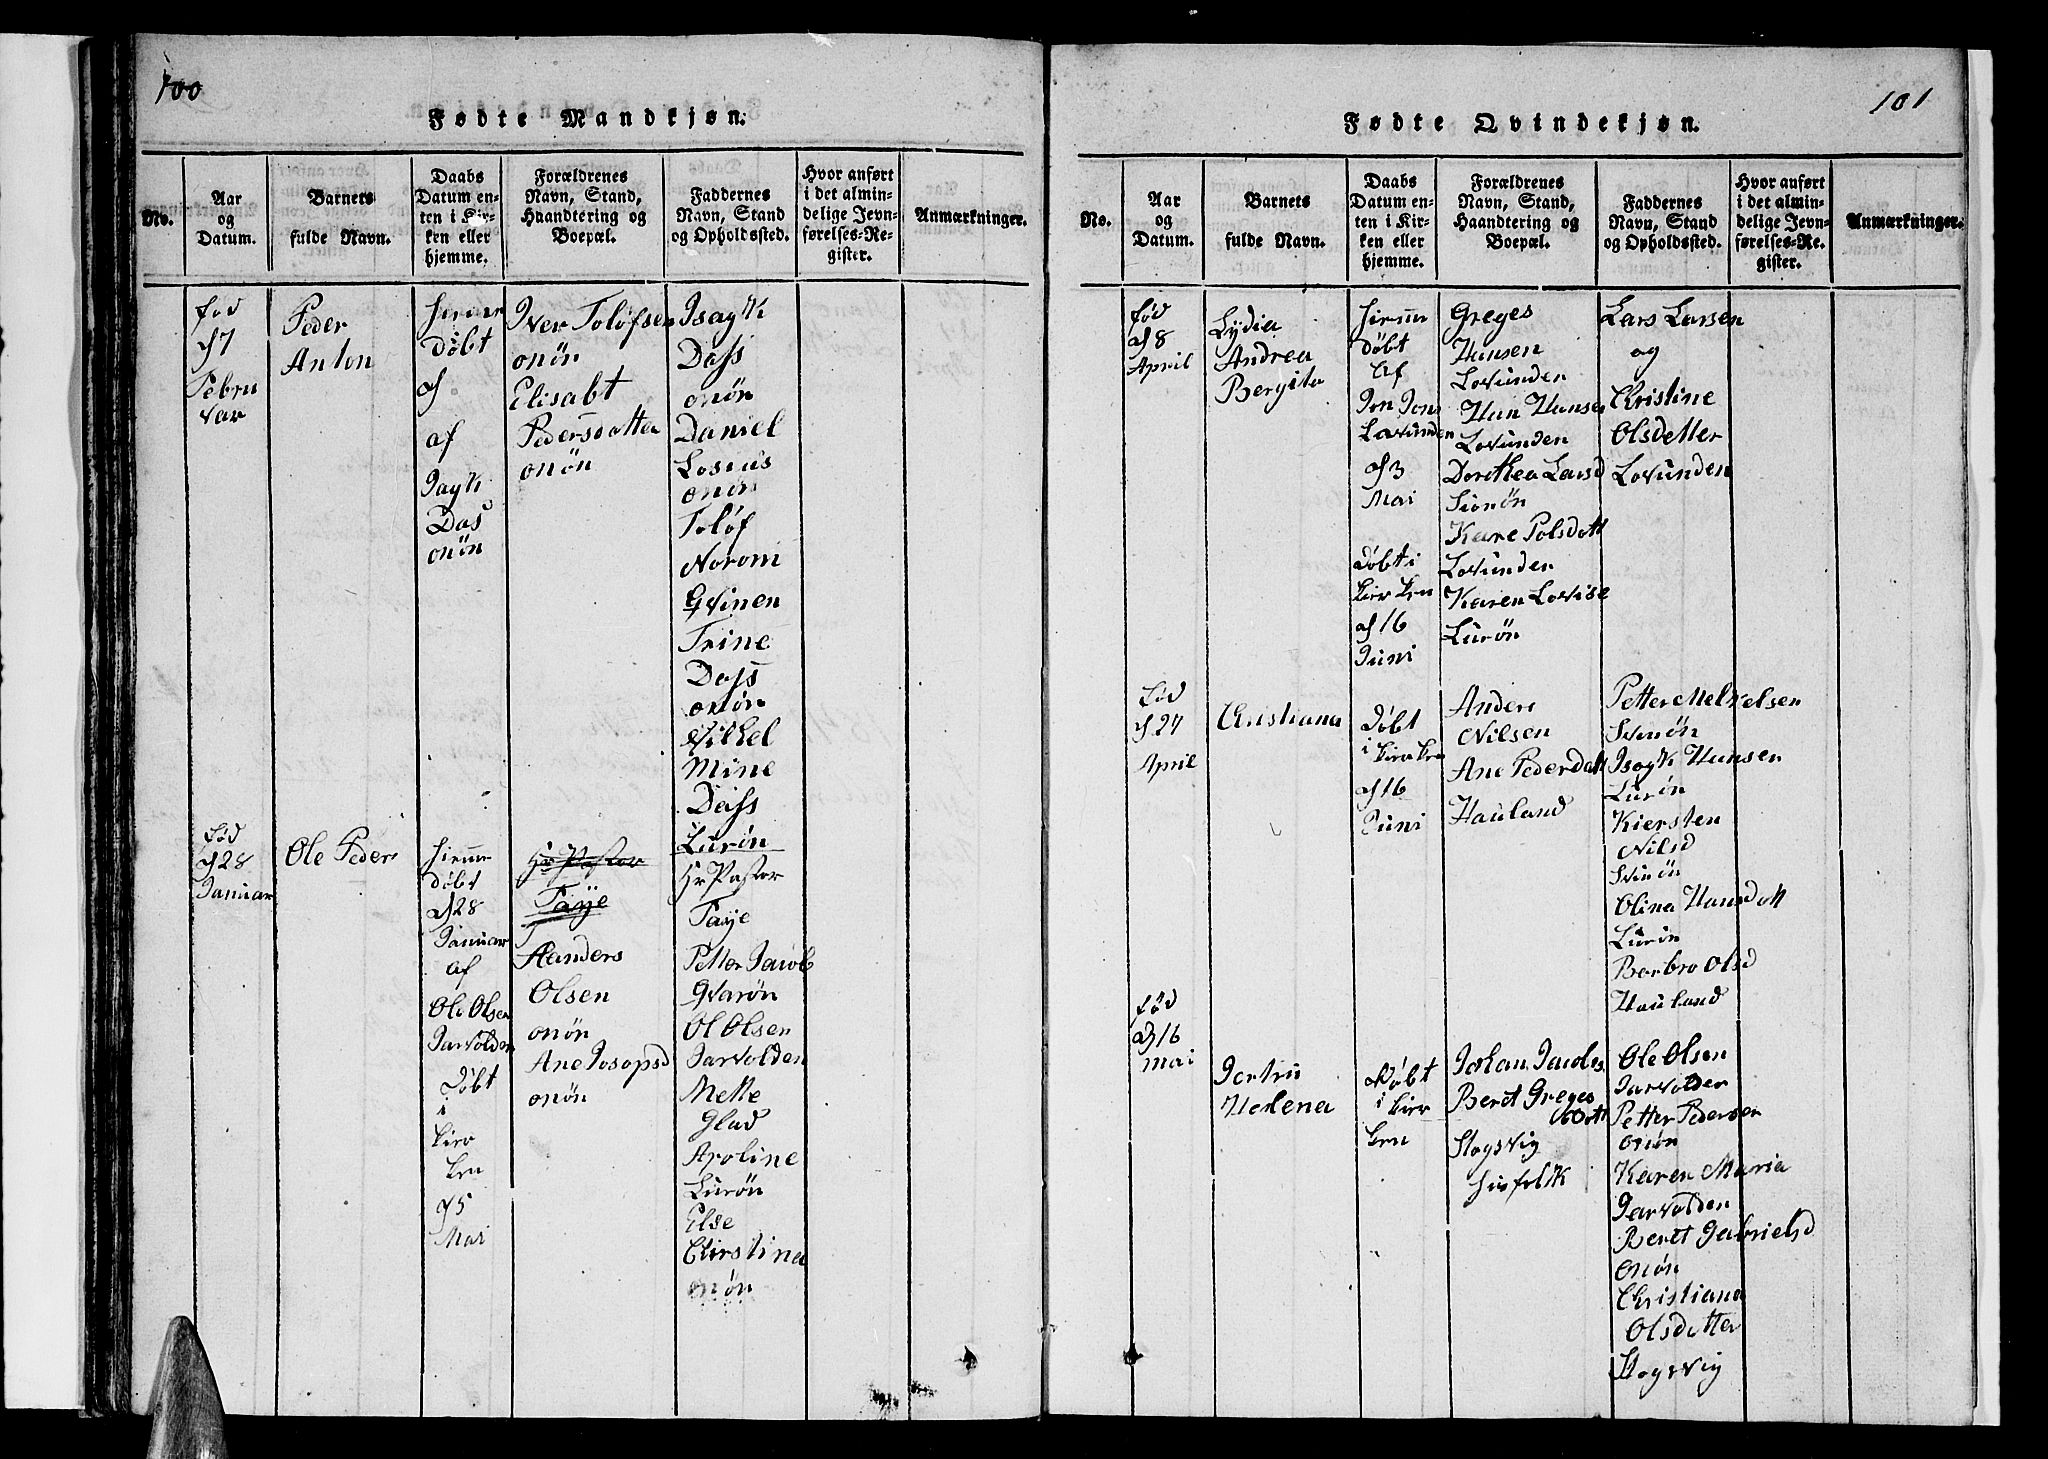 100
Fødte Mandkjøn.
No.
Aar
og
Datum.
Barnets
fulde Navn.
Daabs
Datum en-
ten i Kir-
ken eller
hjemme.
Forældrenes
Navn, Stand,
Haandtering og
Boepæl.
Faddernes
Navn, Stand
og Opholdssted.
Hvor anført
i det almin-
delige Jevn-
førelses-Re-
gister.
Anmærkninger.
fød
d 7
Febru
var
Peder
Anton
døbt
d
af
Jayk
Das
onøn
Iver Toløfsen
onøn
Elisabt
Pedersdatter
onøn
Isayk
Dass
onøn
Daniel
Losius
onøn
Toløf
Norom
Qvinen
Trine
Dass
onøn
Vilhel
Mine
Dass
Lurøn
fød
d 28
Januar
Ole Peder
døbt
d 28
Januar
af
Ole Olsen
Jarvolden
Døbt
i
kier
ken
d 5
Mai
Hr Pastor
Taye
Aanders
Olsen
onøn
Ane Josopsd
onøn
Hr Pastor
Taye
Petter Jacob
Qvarøn
Ol Olsen
Jarvolden
Mette
Glad
Apoline
Lurøn
Else
Chirstina
onøn
101
Fødte Qvindekjøn.
No.
Aar
og
Datum.
Barnets
fulde Navn.
Daabs
Datum en-
ten i Kir-
ken eller
hjemme.
Forældrenes
Navn, Stand,
Haandtering og
Boepæl.
Faddernes
Navn, Stand
og Opholdssted.
Hvor anført
i det almin-
delige Jevn-
førelses-Re-
gister.
Anmærkninger.
fød
d 8
April
Lydia
Andrea
Bergita
døbt
af
Jon Jons
Lovunden
d 3
Mai
Døbt i
kierken
d 16
Juni
Greges
Hansen
Lovunden
Han Hansen
Lovunden
Dorethea Larsd
Kare Polsdatt
Lovunden
Karen Lovise
Lurøn
Lars Larsen
og
Christine
Olsdetter
Lovunden
fød
d 27
April
Christiana
Døbt
i kierken
d 16
Juni
Anders
Nilsen
Ane Pederdatt
Hauland
Petter Melkelsen
Svinøn
Isayk Hansen
Lurøn
Kiersten
Nilsd
Svinøn
Olina Hansdatt
Lurøn
Berbro Olsd
Hauland
fød
d 16
mai
Jertru
Helena
Døbt
i kier
ken
Johan Jacobs
Beret Greges
datt
Stogsvig
Ole Olsen
Jarvolden
Petter Pedersen
onøn
Karen Maria
Jarvolden
Beret Gabrielsd
onøn
Christiana
Olsdatter
Stogsvig